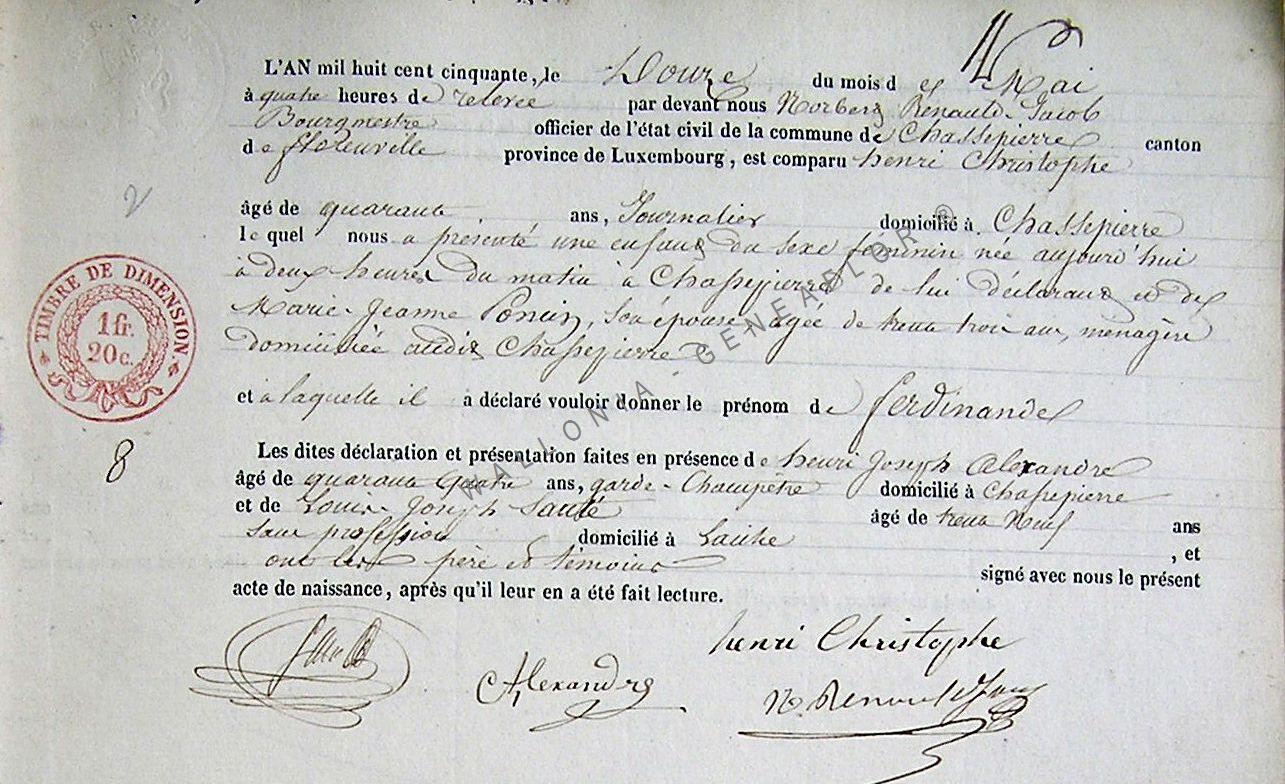 L'AN mil huit cent cinquante, le Douze du mois de Mai
à quatre heures de relevée par devant nous Norbert Renauld-Jacob
Bourgmestre officier de l'état civil de la commune de Chassepierre canton
de florenville province de Luxembourg, est comparu henri Christophe
2
âgé de quarante ans, Journalier domicilié à Chassepierre
le quel nous a présenté une enfant du sexe feminin née aujourd'hui
à deux heures du matin à Chassepierre de lui déclarant et de
Marie-Jeanne Poncin, son épouse, agée de trente trois ans, ménagère
domiciliée audit Chassepierre
TIMBRE DE DIMENSION
1 fr.
20 c.
et à laquelle il a déclaré vouloir donner le prénom de ferdinande
8
Les dites déclaration et présentation faites en présence de henri Joseph Alexandre
âgé de quarante quatre ans, garde-Champêtre domicilié à Chassepierre
et de Louis-Joseph Sauté âgé de trente Neuf ans
sans profession domicilié à Laiche , et
ont les père et témoins signé avec nous le présent
acte de naissance, après qu'il leur en a été fait lecture.
henri Christophe
Alexandre
N. Renauld Jacob
WALLONIA - GENEADLOR ®